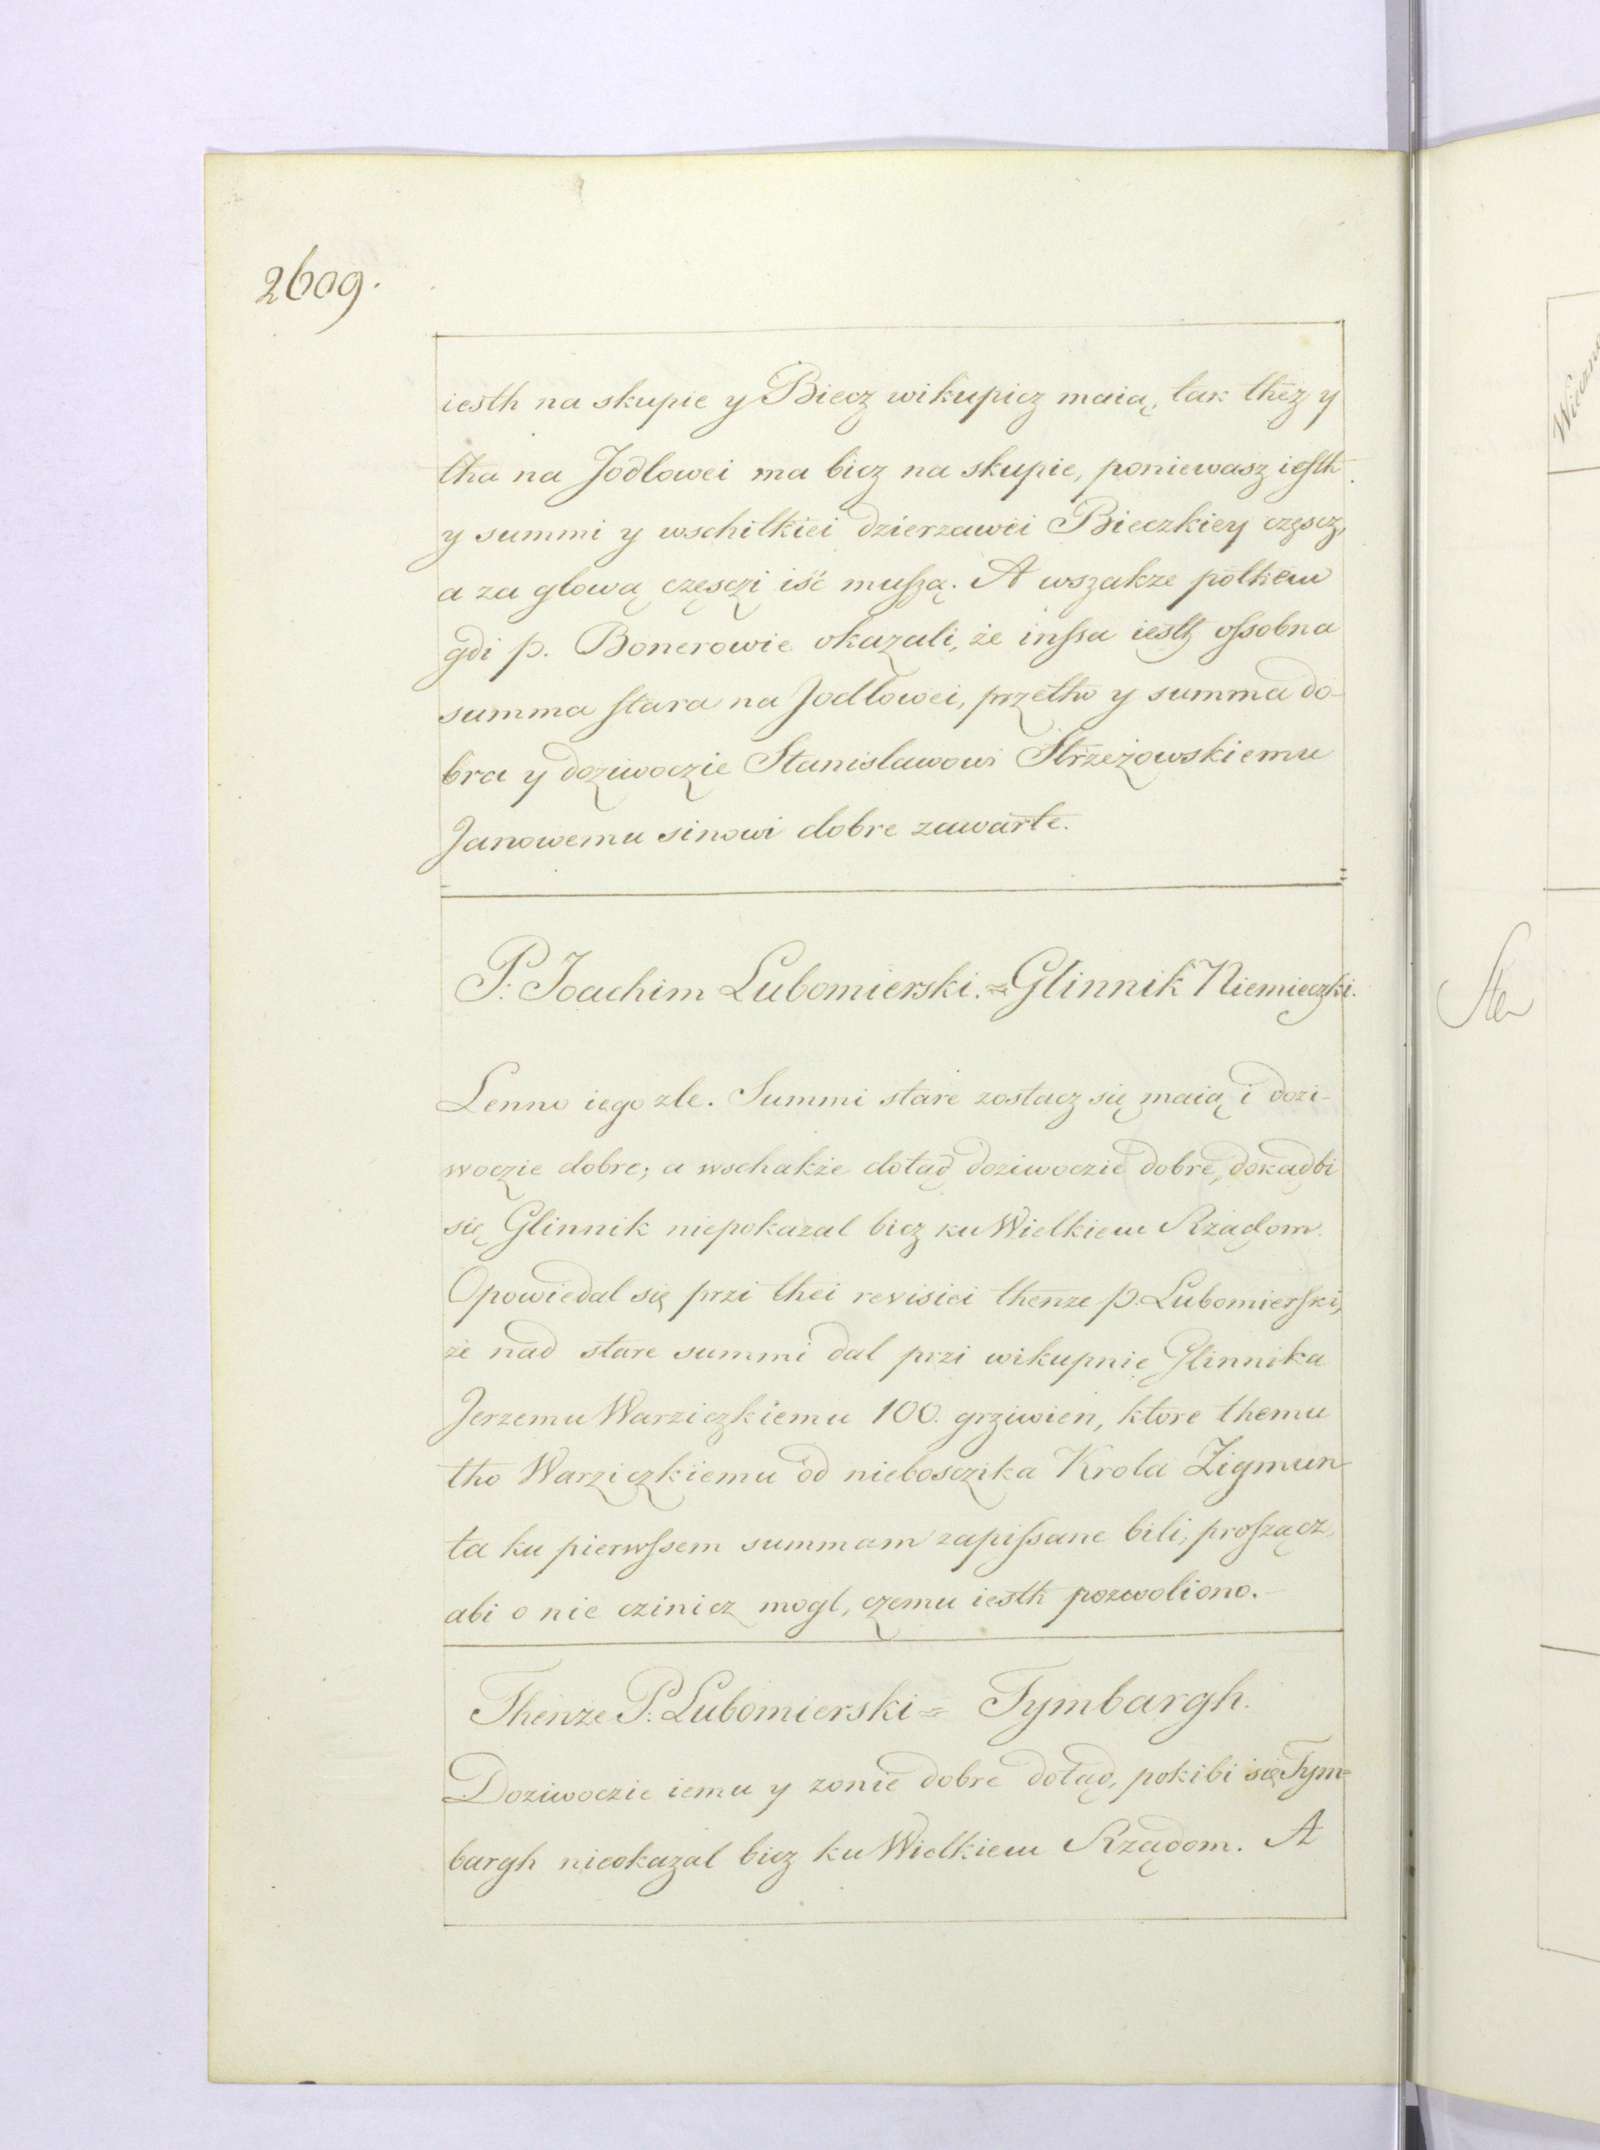 2609.
iesth na skupie y Biecz wikupicz maią, tak thez y
tha na Jodlowei ma bicz na skupie, poniewasz iesth
y summi y wschitkiei dzierzawei Bieczkiey częscz,
a za glową częsczi iść muszą. A wszakze potkem
gdi p. Bonerowie okazali, że inssa iesth ossobna
summa stara na Jodlowei, przetho y summa do-
bra y doziwoczie Stanislawowi Strzeżowskiemu
Janowemu sinowi dobre zawarte.
P. Joachim Lubomierski. = Glinnik Niemieczki.
Lenno iego zle. Summi stare zostacz się maią i dozi-
woczie dobre; a wschakże dotąd doziwoczie dobre, dokądbi
się Glinnik niepokazal bicz ku Wielkiem Rządom.
Opowiedal się przi thei revisiei thenze p. Lubomierski,
że nad stare summi dal przi wikupnie Glinnika
Jerzemu Warziczkiemu 100. grziwien, ktore themu
tho Warziczkiemu od nieboszika Krola Zigmun-
ta ku pierwssem summam zapissane bili, proszącz,
abi o nie czinicz mogl, czemu iesth pozwoliono.
Thenze P. Lubomierski = Tymbargh.
Doziwoczie iemu y zonie dobre dotąd, pokibi się Tym=
bargh nieokazal bicz ku Wielkiem Rządom. A